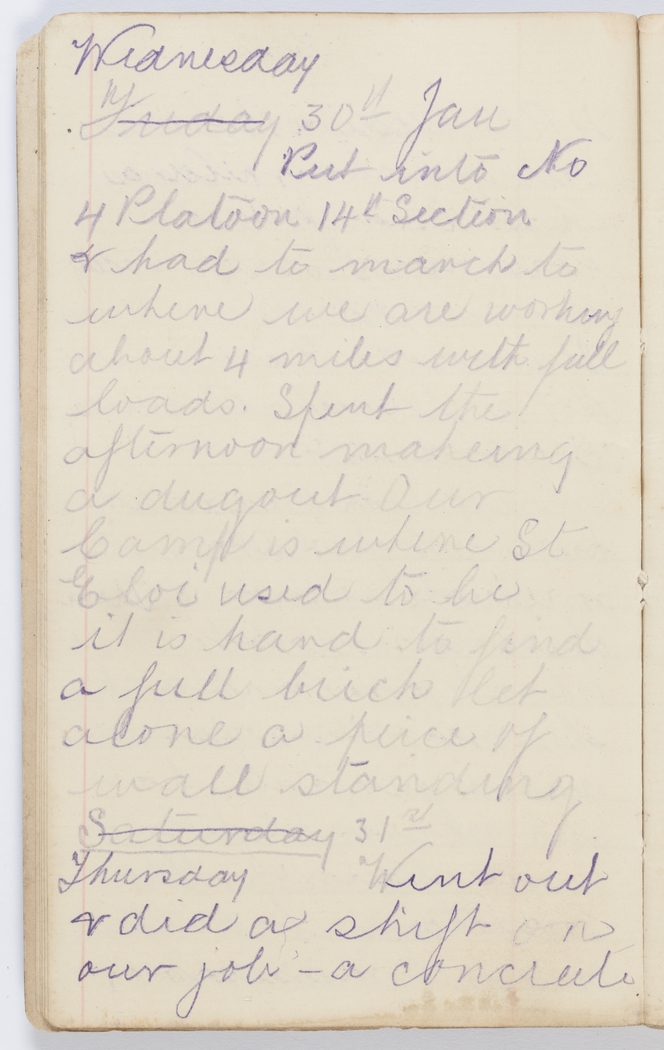 Wednesday
Friday 30th Jan
Put into No
4 Platoon 14th Section
& had to march to
where we are working
about 4 miles with full
loads. Spent the
afternoon makeing
a dugout Our
Camp is where St
Eloi used to be
it is hard to find
a full brick let
alone a peice of
wall standing
Saturday 31st
Thursday Went out
& did a shift on
our job - a concrete